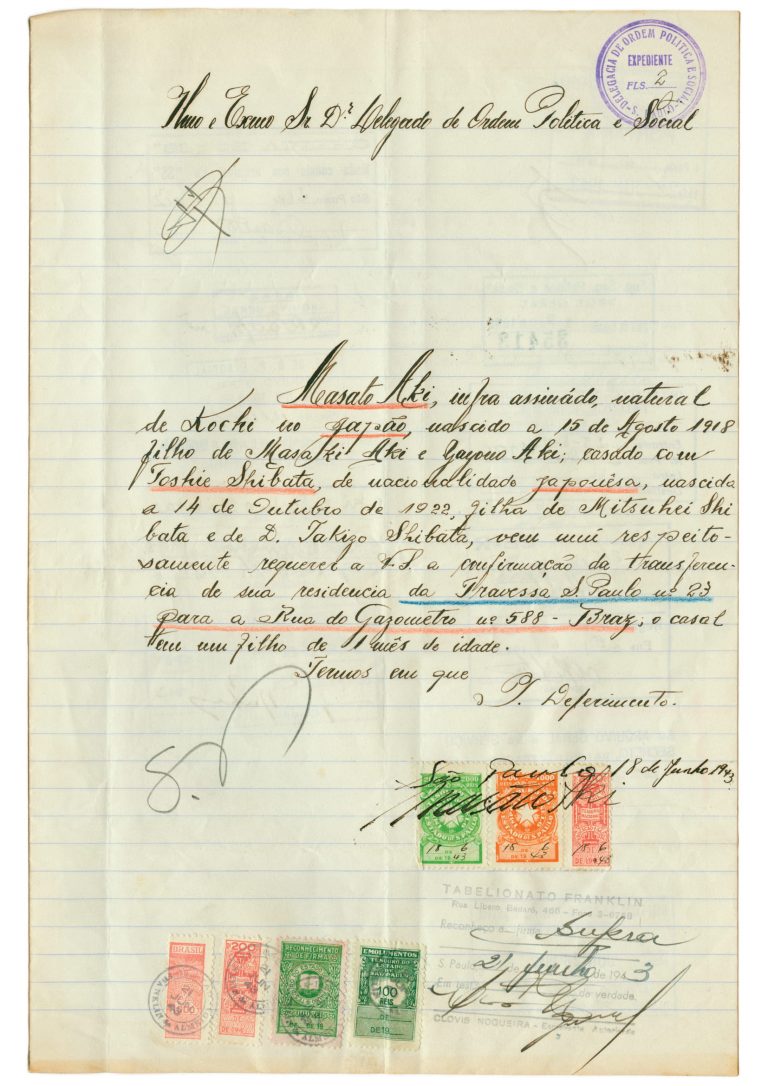 S. DELEGACIA DE ORDEM POLITICA E SOCIAL
EXPEDIENTE
FLS. 2
Illmo e Exmo Sr Dr. Delegado de Ordem Politica e Social
35413
Masato Aki, infra assinádo, natural
de Kochi no Japão, nascido a 15 de Agosto 1918
filho de Masaki Aki e Yayono Aki; casado com
Toshie Shibata, de nacionalidade japonêsa, nascida
a 14 de Outubro de 1922, filha de Mitsuhei Shi
bata e de D. Takizo Shibata, vem mui respeito-
samente requerer a V.S. a confirmação da transferen-
cia de sua residencia da Travessa S. Paulo nº 23
para a Rua do Gazometro nº 588 - Braz; o casal
tem um filho de 1 mês de idade.
Termos em que
P. Deferimento.
São Paulo, 18 de Junho 1943
Masato Aki
2000
ESTADO DE S. PAULO
18 6 43
2.000
ESTADO DE S. PAULO
18 6 43
18 6
TABELIONATO FRANKLIN
Rua Libero Badaró, 466 - Fone
Reconheço a firma supra
S. Paulo, 21 de Junho de 1943
Em test. da verdade.
CLOVIS NOGUEIRA - Escrevente Autorizado
BRASIL
200
RECONHECIMENTO
DE FIRMA
DE DE 19
EMOLUMENTOS
TESOURO DO
ESTADO
DE
SÃO PAULO
100
REIS
DE
DE 19
21 JUN